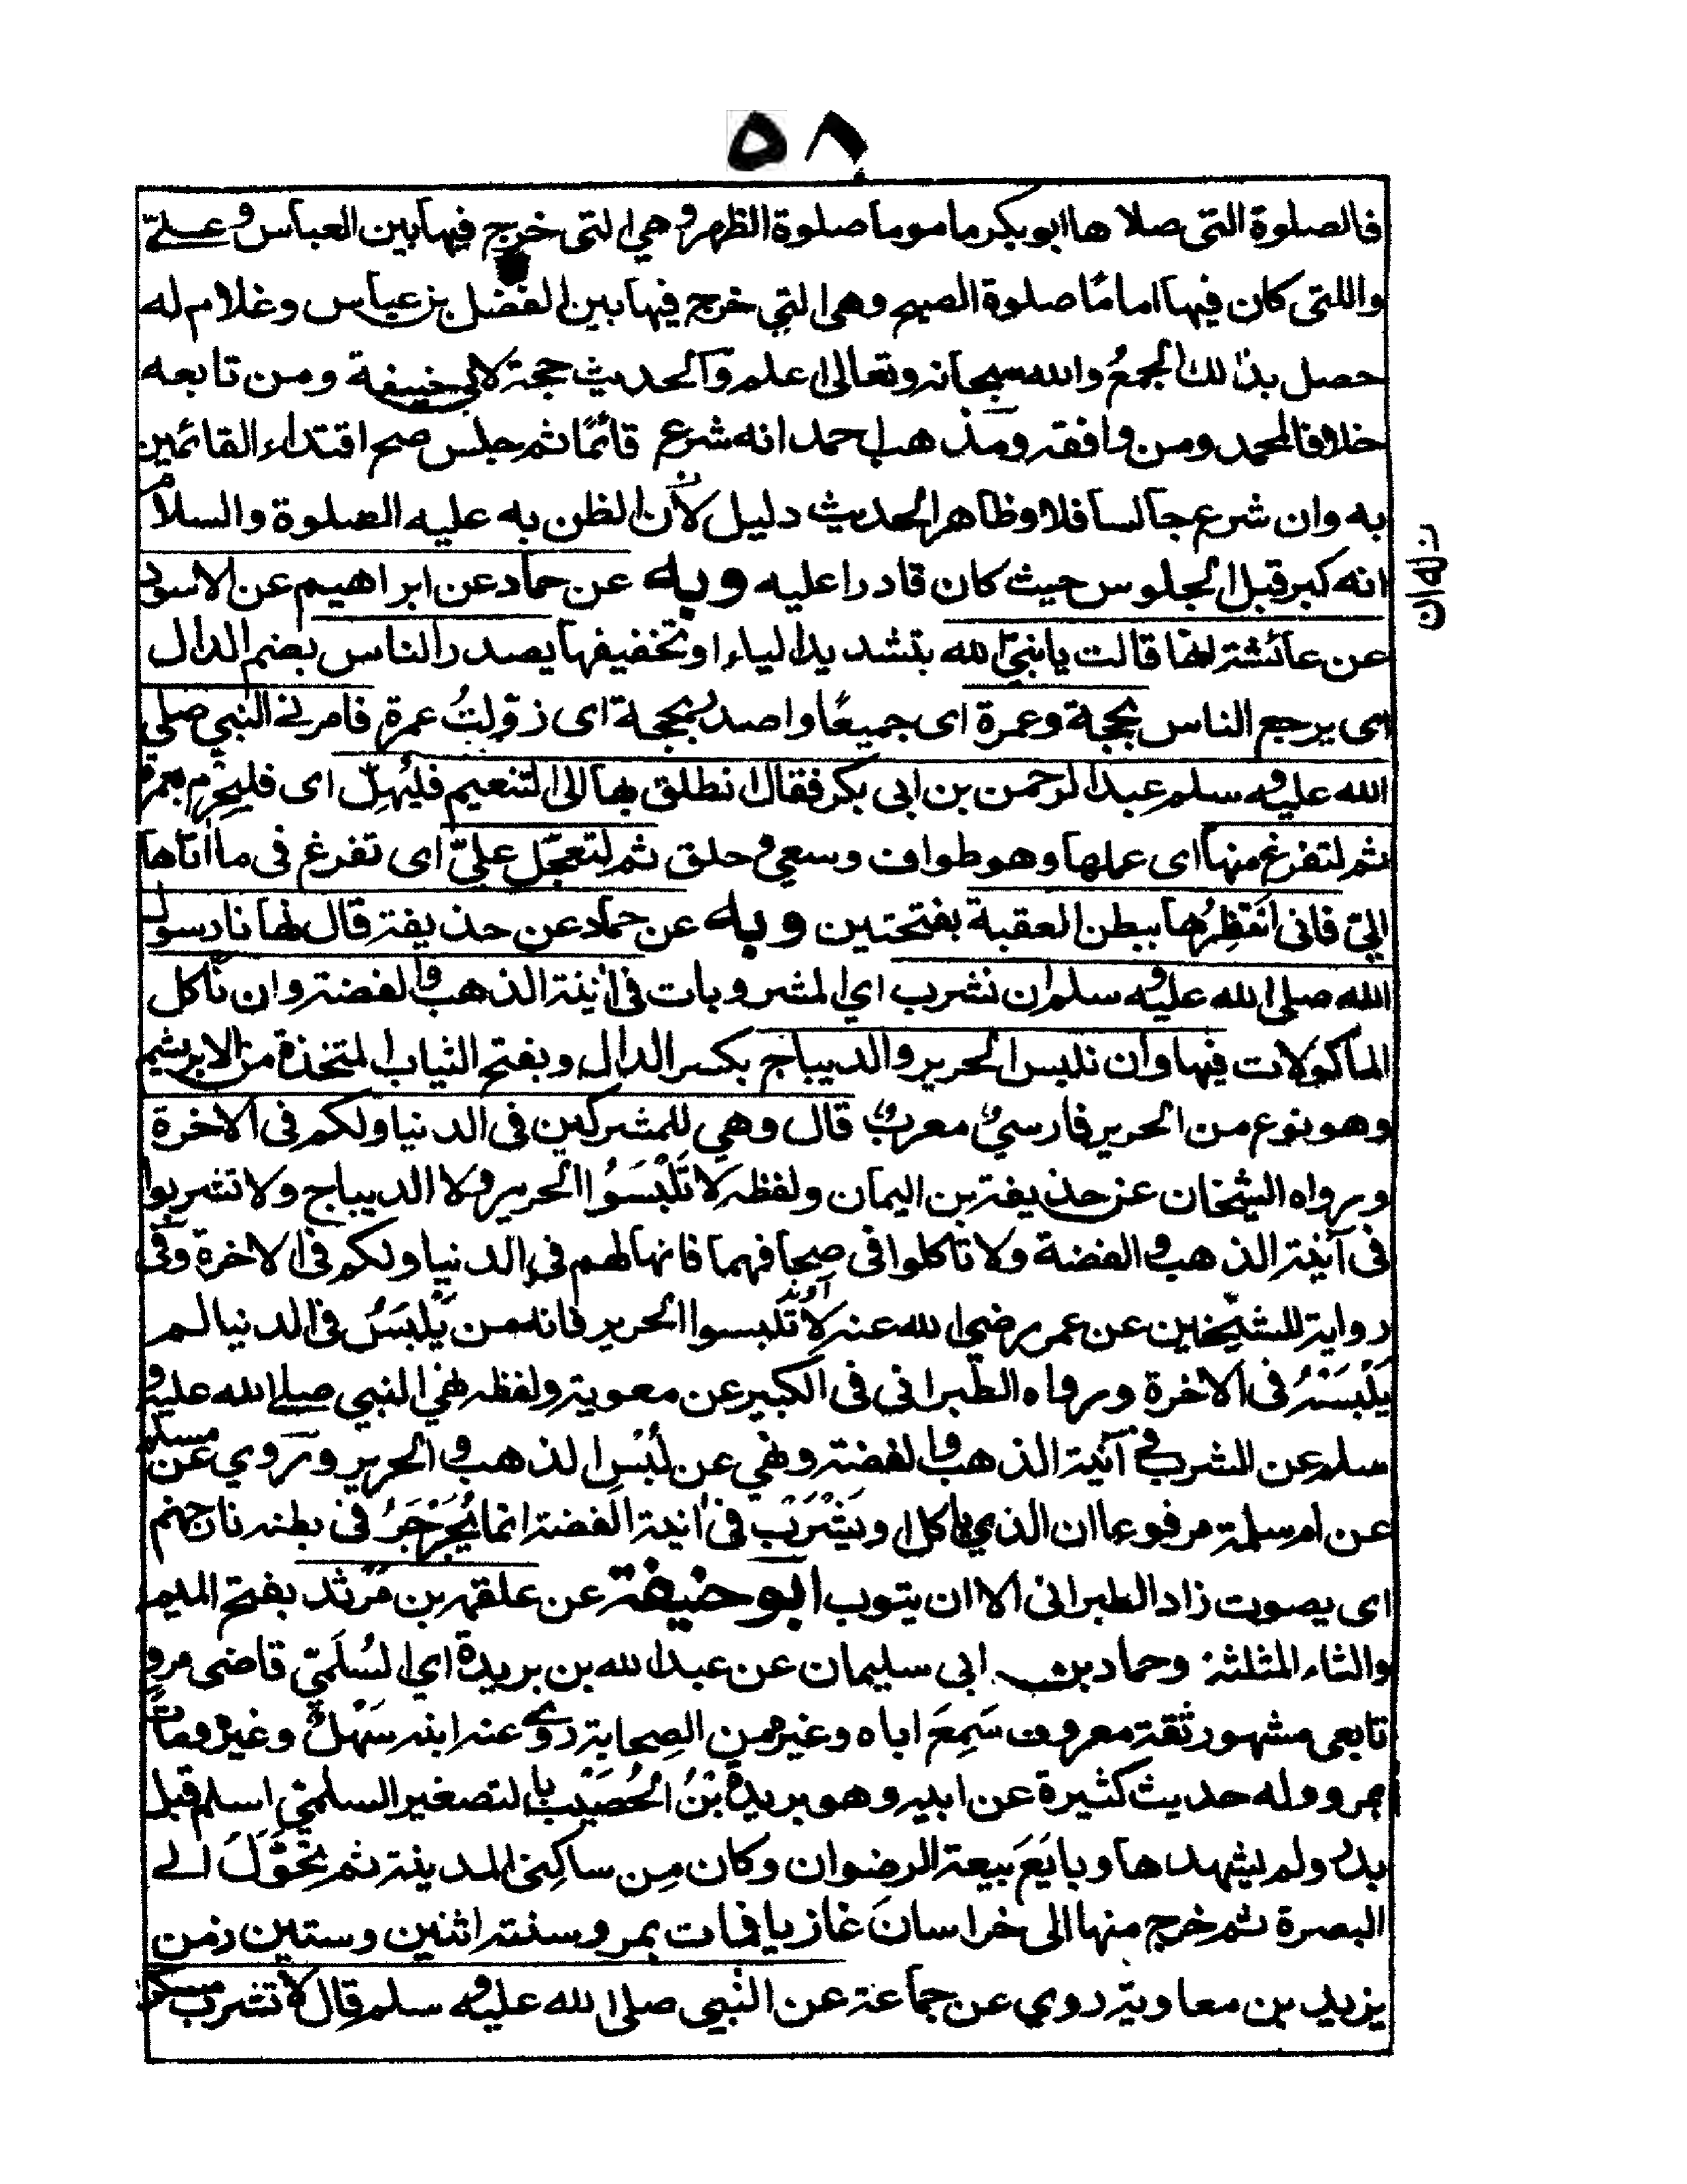 ٥٨
فالصلوة التى صلاها ابو بكر ماموما صلوة الظهر وهي التى خرج فيها بين العباس وعلىّ
واللتى كان فيها اماما صلوة الصبح وهى التي خرج فيها بين الفضل بن عباس وغلام له
حصل بذلك الجمع والله سبحانه وتعالى اعلم والحديث حجة لابى حنيفة ومن تابعه
خلافا لمحمد ومن وافقه ومذهب احمد انه شرع قائمًا ثم جلس صح اقتداء القائمين
به وان شرع جالسا فلا وظاهر الحديث دليل لأن الظن به عليه الصلوة والسلام
انه كبر قبل الجلوس حيث كان قادرا عليه وبه عن حماد عن ابراهيم عن الاسود
عن عائشة انها قالت يا نبيّ الله بتشديد الياء او تخفيفها يصدر الناس بضم الدال
اى يرجع الناس بحجة وعمرة اى جميعًا واصدر بحجة اى فامرنى النبي صلى
الله عليه وسلم عبد الرحمن بن ابى بكر فقال انطلق بها الى التنعيم فليُهِلّ اى فليحرم بعمرة
ثم لتفرغ منها اى عملها وهو طواف وسعي وحلق ثم لتعجّل عليّ اى تفرغ فى ما اتاها
اليّ فانى انتظِرُها ببطن العقبة بفتحتين وبه عن حماد عن حذيفة قال نهانا رسول
الله صلى الله عليه وسلم ان نشرب اي المشروبات فى آنية الذهب والفضة وان نأكل
الماكولات فيها وان نلبس الحرير والديباج بكسر الدال وبفتح الثياب المتخذة من الابريشم
وهو نوع من الحرير فارسيٌ معربٌ قال وهي للمشركين فى الدنيا ولكم فى الاخرة
ورواه الشيخان عن حذيفة بن اليمان ولفظه لا تَلْبَسُوا الحرير ولا الديباج ولا تشربوا
فى آنية الذهب والفضة ولا تاكلوا فى صحافهما فانها لهم فى الدنيا ولكم فى الاخرة وفى
رواية للشيخين عن عمر رضي الله عنه لا تلبسوا الحرير فانه من يَلبَسُ فى الدنيا لم
يَلْبَسْهُ فى الاخرة ورواه الطبرانى فى الكبير عن معوية ولفظه نهى النبي صلى الله عليه و
سلم عن الشرب فى آنية الذهب والفضة ونهي عن لُبْس الذهب والحرير وروي عن مسلم
عن ام سلمة مرفوعا ان الذي ياكل ويَشْرَبُ فى آنية الفضة انما يُجَرْجِرُ فى بطنه نار جهنم
اى يصوت زاد الطبرانى الا ان يتوب ابو حنيفة عن علقمة بن مَرْثد بفتح الميم
والثاء المثلثة وحماد بن ابى سليمان عن عبد الله بن بريدة اي السُلَمِي قاضى مرو
تابعى مشهور ثقة معروف سَمِعَ اباه وغيره من الصحابة روى عنه ابنه سَهْلٌ وغيره ومات
بمرو وله حديث كثيرة عن ابيه وهو بريدة بْنُ الحُصَيْب بالتصغير السلمي اسلم قبل
بدر ولم يشهدها وبايَعَ بيعة الرضوان وكان مِن ساكِنى المدينة ثم تحوّلَ الى
البصرة ثم خرج منها الى خراسانَ غازيا فمات بمرو سنة اثنين وستين زمن
يزيد بن معاوية روي عن جماعة عن النبي صلى الله عليه وسلم قال لا تشرب مسكرا